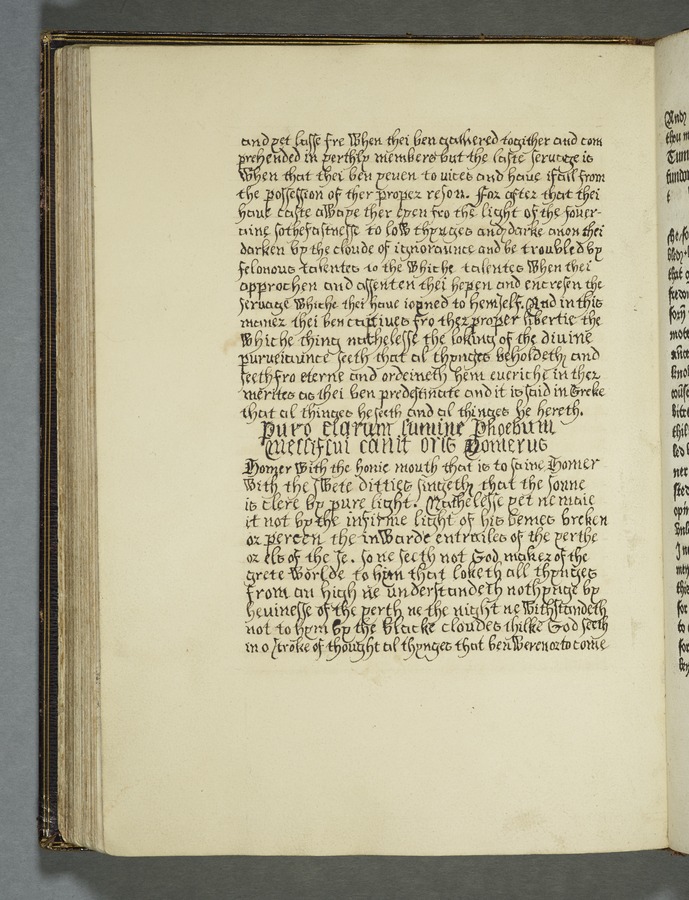 and yet lasse fre when thei ben gathered togither and com
prehended in yerthly members but the laste servage is
when that thei ben yeven to vices and have ifall from
the possession of ther proper reson. For after that thei
have caste awaye ther eyen fro the light of the sover-
aine sothefastnesse to low thynges and darke anon thei
darken by the cloude of ignoraunce and be troubled by
felonous talentes to the whiche talentes when thei
approchen and assenten thei hepen and encresen the
servage whiche thei have ioyned to hemself. And in this
maner thei ben captives fro ther proper libertie the
whiche thing nathelesse the loking of the divine
purveiaunce seeth that al thynges beholdeth and
seeth fro eterne and ordeineth hem everiche in ther
merites as thei ben predestinate and it is said in Greke
that al thinges he seeth and al thinges he hereth.
Puro clarum lumine Phoebum
Melliflui canit oris Homerus
Homer with the honie mouth that is to saine Homer
with the swete ditties singeth that the sonne
is clere by pure light. Nathelesse yet ne maie
it not by the infirme light of his bemes breken
or percen the inwarde entrailes of the yerthe
or els of the se. So ne seeth not God maker of the
grete worlde to him that loketh all thynges
from an high ne understandeth nothynge by
hevinesse of the yerth ne the night ne withstandeth
not to hym by the blacke cloudes thilke God seeth
in o stroke of thought al thynges that ben weren or to come